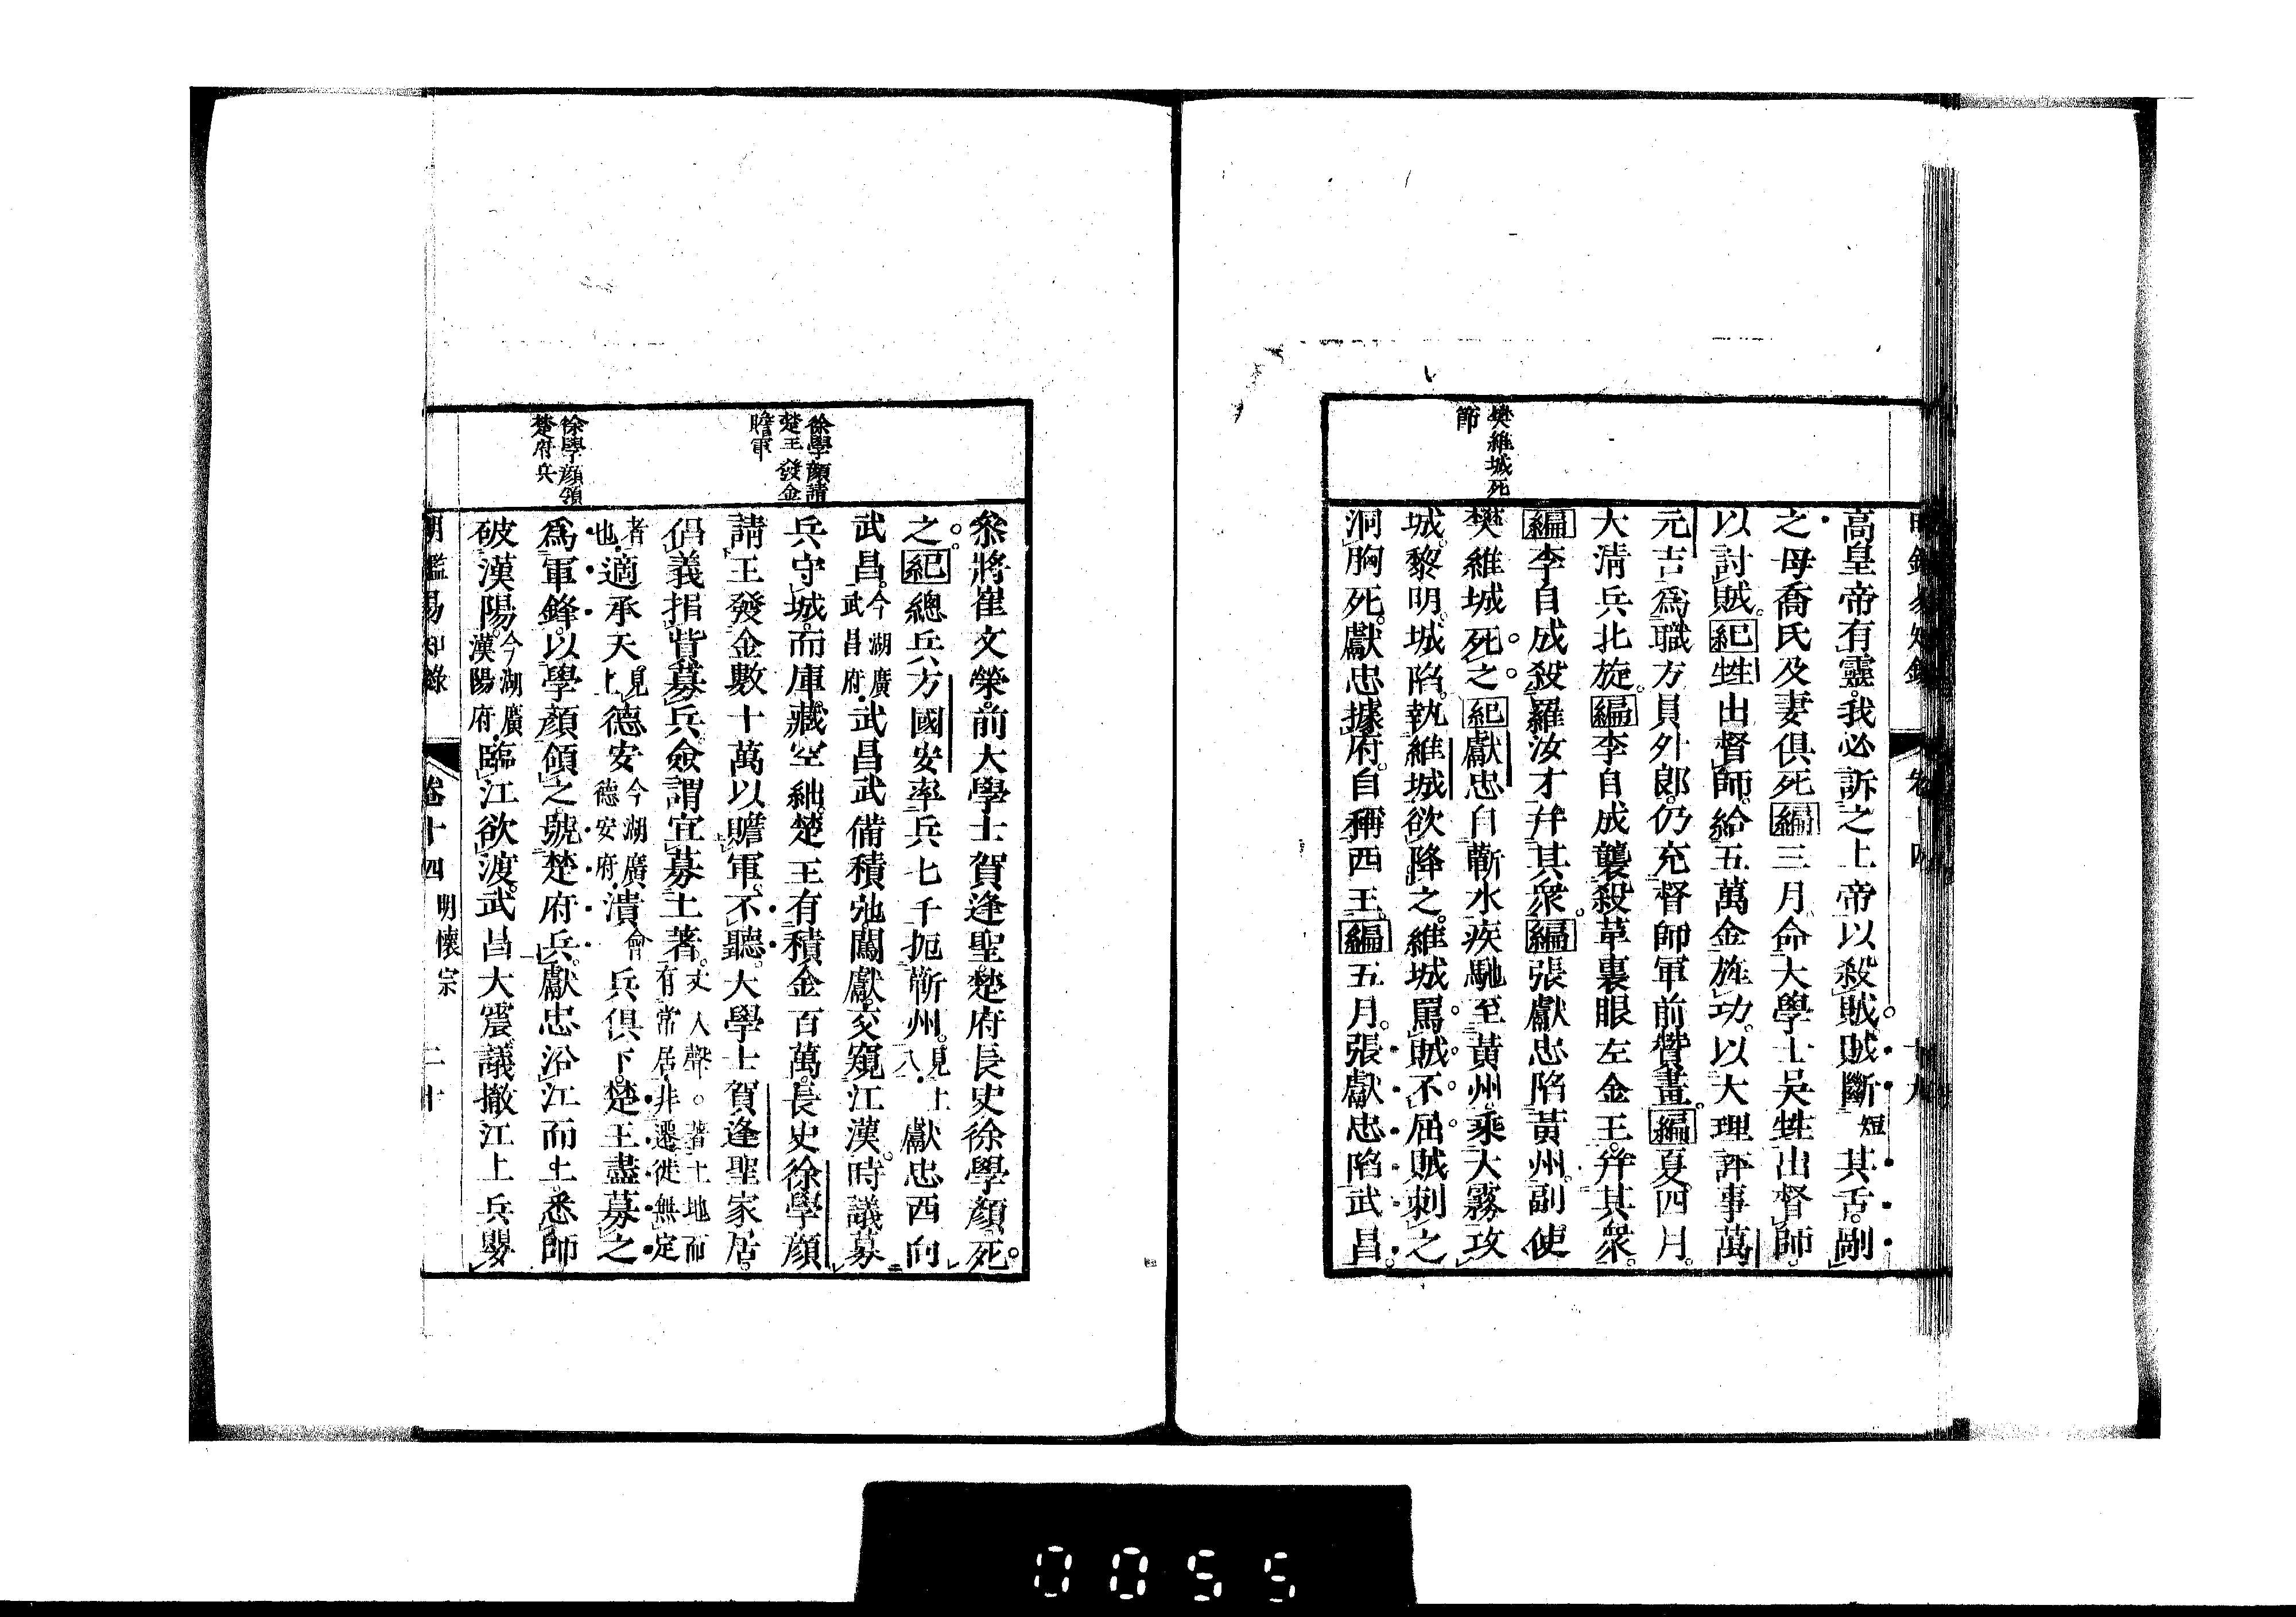 樊維城死
節
高皇帝有靈。我必訴之上帝以殺賊。賊斷短其舌。剮
之母喬氏及妻俱死編三月命大學士吳甡出督師。
以討賊。紀甡出督師。給五萬金旌功。以大理評事萬
元吉爲職方員外郎。仍充督師軍前贊畫。編夏四月。
大淸兵北旋。編李自成襲殺革裏眼左金王。幷其衆。
編李自成殺羅汝才幷其衆。編張獻忠陷黃州。副使
樊維城死之。紀獻忠自蘄水疾馳至黃州。乘大霧攻
城。黎明。城陷。執維城欲降之。維城罵賊不屈。賊刺之
洞胸死。獻忠據府。自稱西王。編五月。張獻忠陷武昌。
徐學顏請
楚王發金
贍軍
徐學顏領
楚府兵
參將崔文榮。前大學士賀逢聖。楚府長史徐學顏死。
之。紀總兵方國安率兵七千扼蘄州。見上八。獻忠西向
武昌。今湖廣武昌府。武昌武備積弛。闖獻交窺江漢。時議募
兵守城。而庫藏空絀。楚王有積金百萬。長史徐學顏
請王發金數十萬以贍軍。不聽。大學士賀逢聖家居。
倡義捐貲募兵僉謂宜募土著。丈入聲。著土地而有常居。非遷徙無定
者也。適承天。見上德安今湖廣德安府。潰會兵俱下。楚王盡募之
爲軍鋒。以學顏領之號楚府兵。獻忠沿江而上。悉師
破漢陽。今湖廣漢陽府。臨江欲渡。武昌大震。議撤江上兵嬰
明鑑易知錄 卷十四 明懷宗 二十
0055